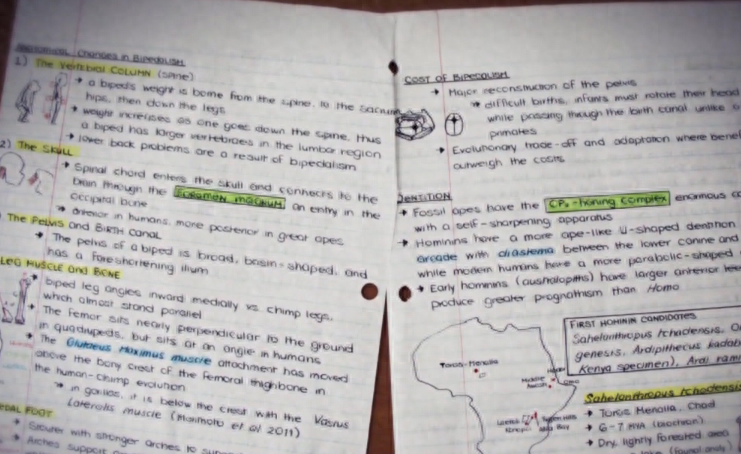 Anatomical Changes in Bipedalism
1) The Vertebral Column (spine)
→ a biped's weight is borne from the spine, to the sacrum,
hips, then down the legs
→ weight increases as one goes down the spine, thus
a biped has larger vertebraes in the lumbar region
→ lower back problems are a result of bipedalism
2) The Skull
→ Spinal chord enters the skull and connects to the
brain through the foramen magnum, an entry in the
occipital bone
→ anterior in humans, more posterior in great apes
The Pelvis and Birth Canal
→ The pelvis of a biped is broad, basin-shaped, and
has a foreshortening ilium
Leg Muscle and Bone
→ biped leg angles inward medially vs. chimp legs,
which almost stand parallel
→ The femur sits nearly perpendicular to the ground
in quadrupeds, but sits at an angle in humans
→ The Gluteus Maximus muscle attachment has moved
above the bony crest of the femoral thighbone in
the human-chimp evolution
→ in gorillas, it is below the crest with the Vastus
Lateralis muscle (Morimoto et al 2011)
Foot
→ with stronger arches to
→ Arches support
Cost of Bipedalism
→ Major reconstruction of the pelvis
→ difficult births, infants must rotate their head
while passing through the birth canal unlike
primates
→ Evolutionary trade-off and adaptation where
outweigh the costs
Dentition
→ Fossil apes have the CP₃-honing complex, enormous
with a self-sharpening apparatus
→ Hominins have a more ape-like U-shaped dentition
arcade with diastema between the lower canine and
while modern humans have a more parabolic-shaped
→ Early hominins (australopiths) have larger anterior
produce greater prognathism than Homo
First Hominin Candidates
Sahelanthropus tchadensis,
Ardipithecus
Kenya specimen),
Toros-Menalla
Middle
Awash
Sahelanthropus tchadensis
→ Toros Menalla, Chad
→ 6-7 MYA (biochron)
→ Dry, lightly forested area